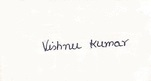 Vishnu Kumar